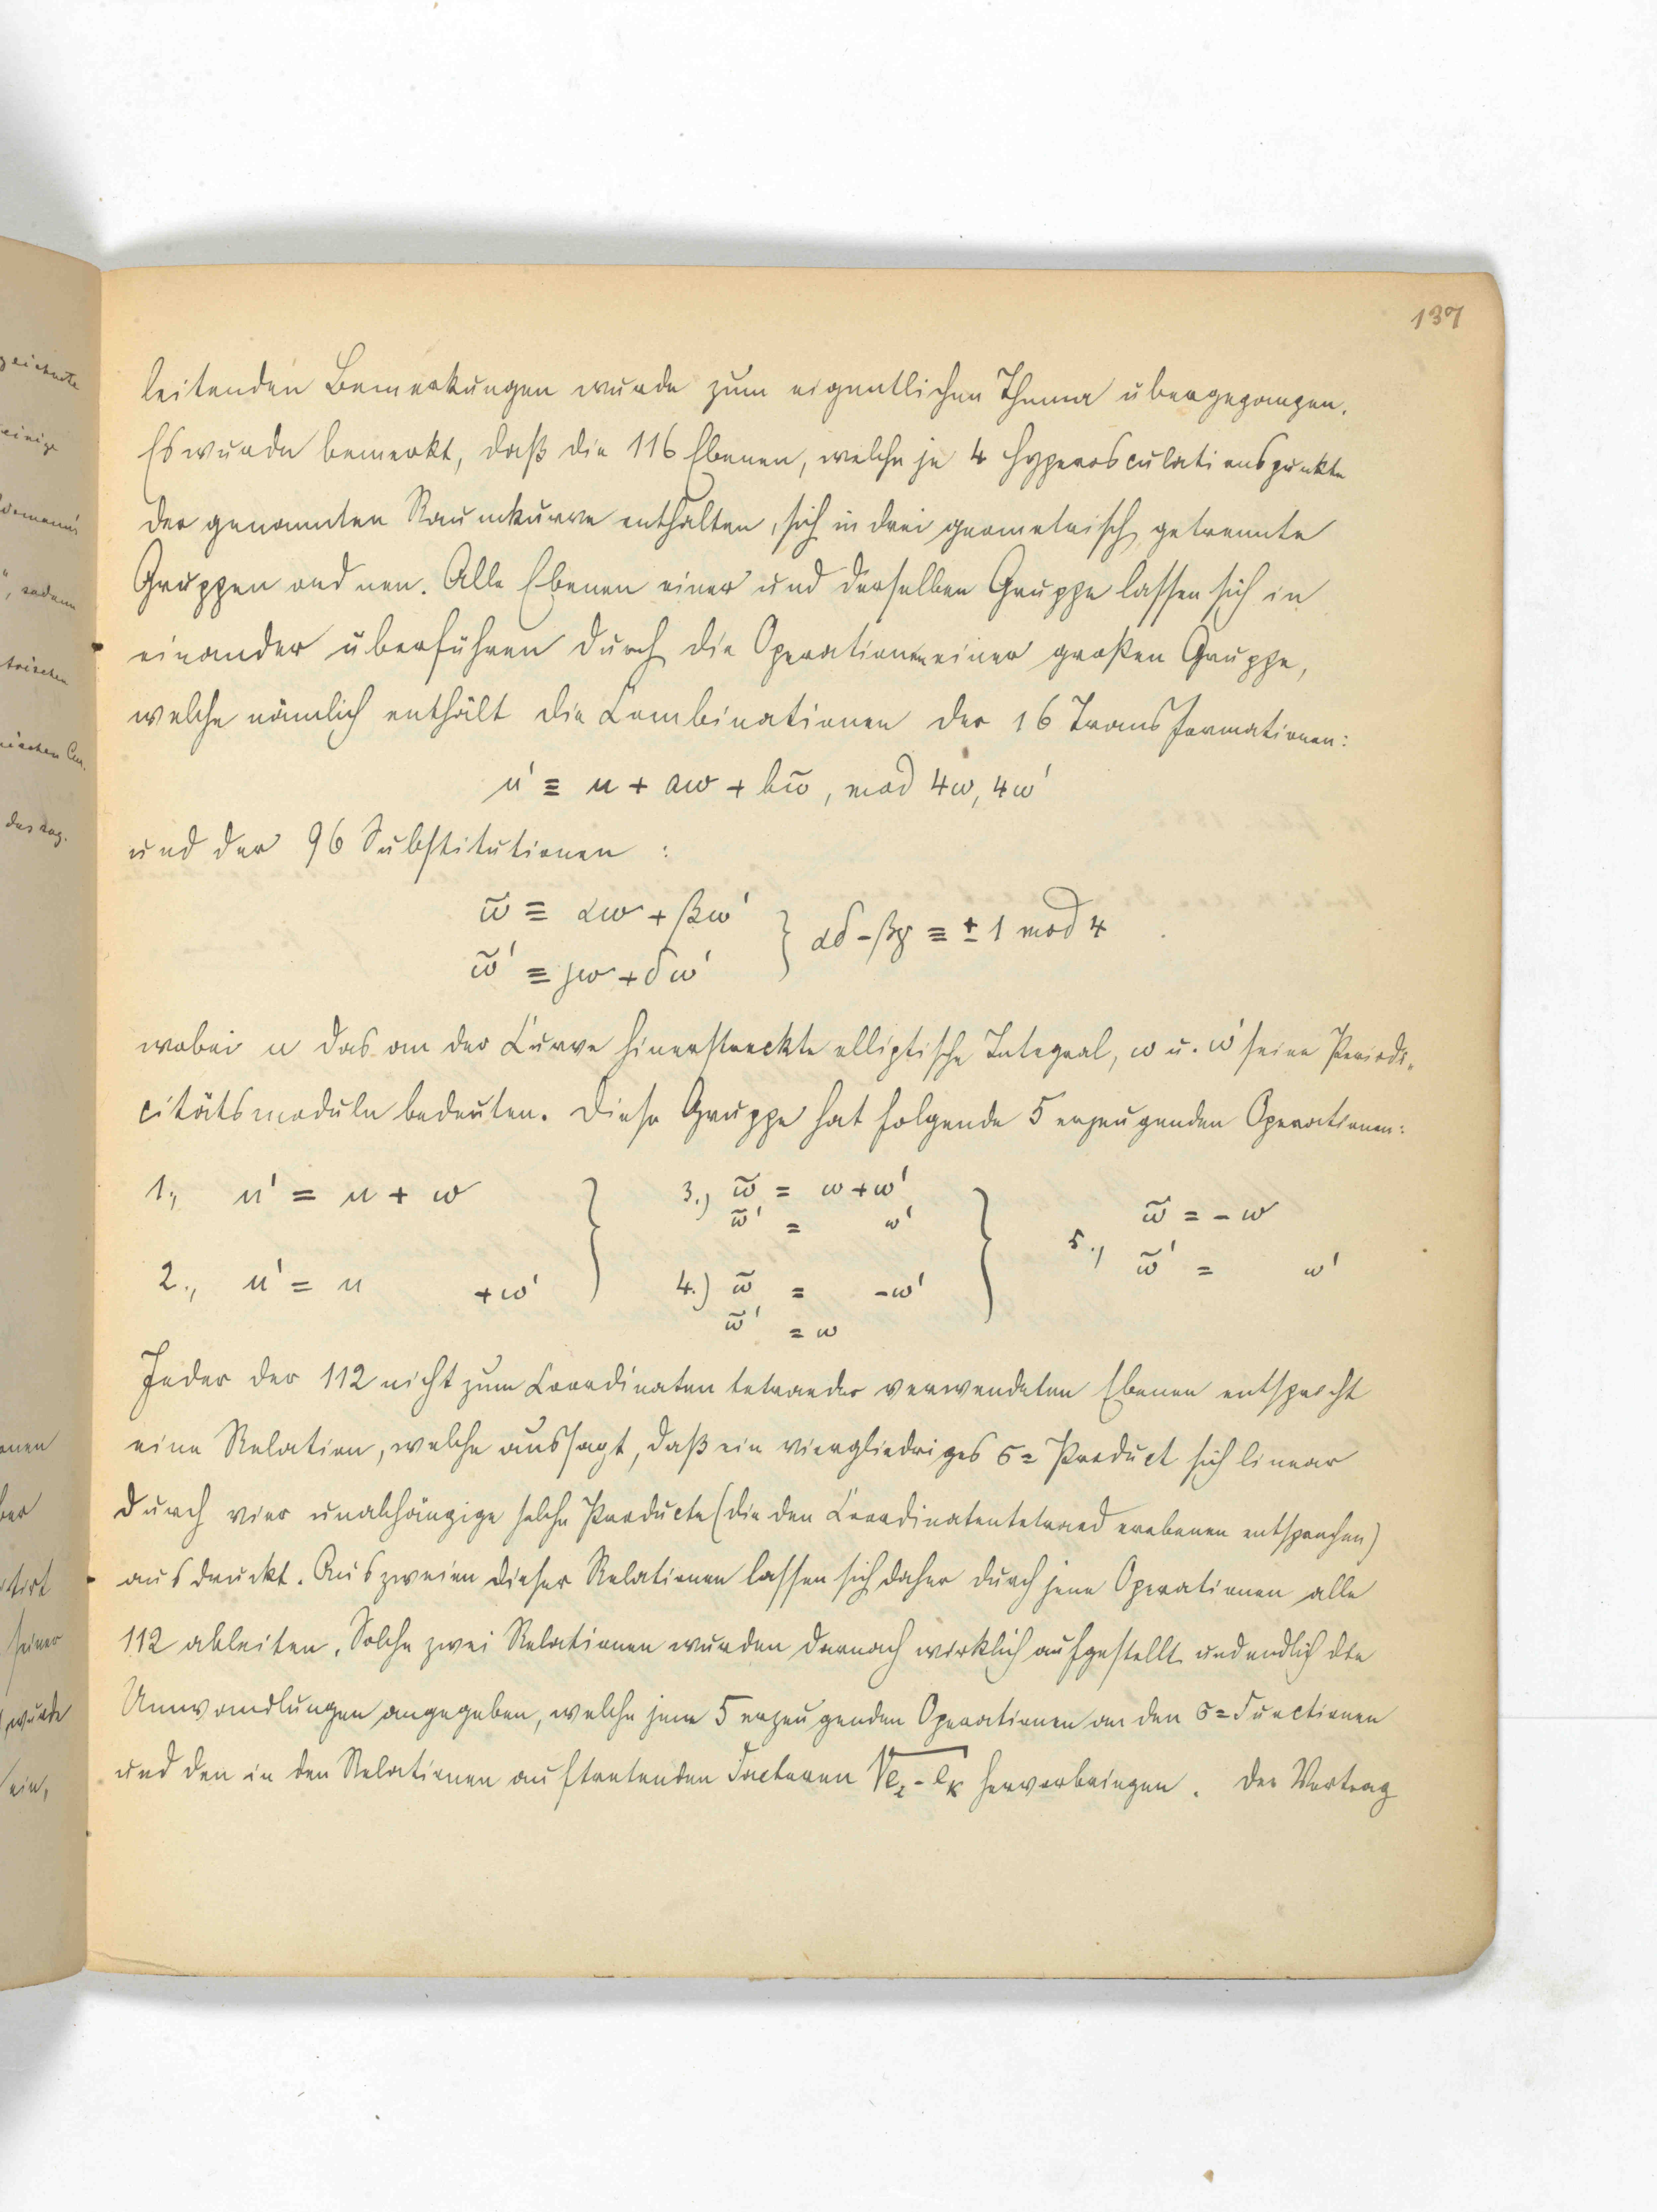 137
leitenden Bemerkungen wurde zum eigentlichen Thema übergegangen.
Es wurde bemerkt, daß die 116 Ebenen, welche je 4 Hyperosculationspunkte
der genannten Raumkurve enthalten, sich in drei geometrisch getrennte
Gruppen ordnen. Alle Ebenen einer und derselben Gruppe lassen sich in
einander überführen durch die Operationen einer großen Gruppe,
welche nämlich enthält die Combinationen der 16 Transformationen:
u' ≡ u + aω + bω̃, mod 4ω, 4ω'
und der 96 Substitutionen :
ω̃ ≡ αω + βω'
ω̃' ≡ γω + δω' } αδ - βγ ≡ ± 1 mod 4
wobei u das an der Curve hinerstreckte elliptische Integral, ω u. ω' seine Periodi-
citätsmoduln bedeuten. Diese Gruppe hat folgende 5 erzeugenden Operationen:
1., u' = u + ω
2., u' = u + ω' }
3.) ω̃ = ω + ω'
ω̃' = ω'
4.) ω̃ = -ω'
ω̃' = ω }
5.) ω̃ = - ω
ω̃' = ω'
Jeder der 112 nicht zum Coordinatentetraeder verwendeten Ebenen entspricht
eine Relation, welche aussagt, daß ein viergliedriges σ= Product sich linear
durch vier unabhängige solche Producte (die den Coordinatentetraederebenen entsprechen)
ausdruckt. Aus zweien dieser Relationen lassen sich daher durch jene Operationen alle
112 ableiten. Solche zwei Relationen wurden darnach wirklich aufgestellt und endlich die
Umwandlungen angegeben, welche jene 5 erzeugenden Operationen an den σ= Functionen
und den in den Relationen auftretenden Factoren √e_i - e_k hervorbringen. Der Vortrag
zeichnete
einige
", sodann
der
seiner
wurde
ein,